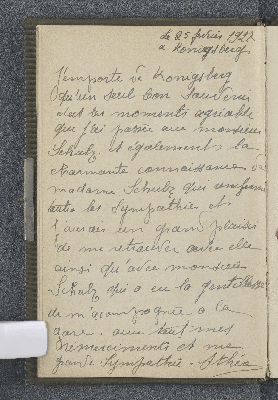 le 25 février 1922
à Königsberg
J'emporte de Konigsberg
qu'un seul bon souvenir
c'est les moments agréable
que j'ai passée avec monsieur
Schulz et egalement la
charmante connaissance de
madame Schulz qui
toute les Sympathies et
j'aurais un grand plaisir
de me retrouver avec elle
ainsi qu'avec monsieur
Schulz qui a eu la gentillesse
de m'accompagner a la
gare. avec tout mes
remerciments et ma
grande Sympathie.